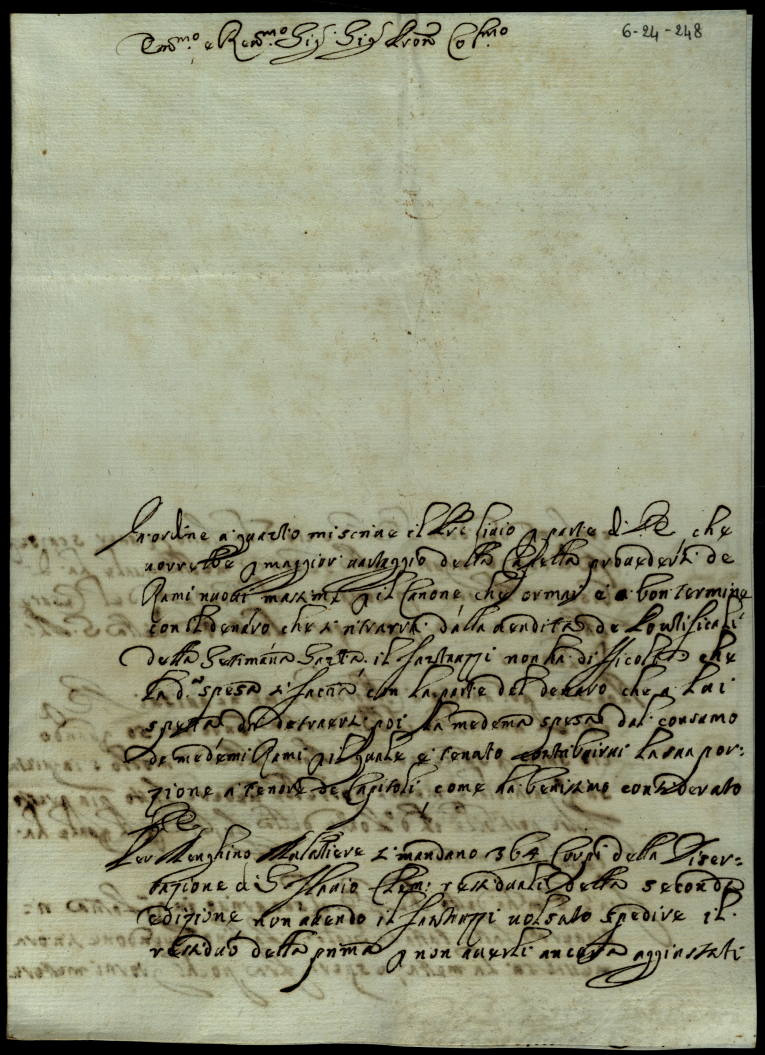 6-24-248
Em.mo e Rev.mo Sig.r Sig.r Pron Col.mo
In ordine a quanto mi scrive il Pre Livio p parte di VE che
vorrebbe p maggior vantaggio della Capella provedersi de
Rami nuovi massime p il Canone che ormai è a bon termine
con il denaro che si ritrarrà dalla vendita de Pontificali
della Setimana Santa il Fantauzzi non ha dificoltà che
la d.a spesa si faccia con la parte del denaro che a lui
spetta da detraersi poi la medema spesa dal consumo
de medemi Rami p il quale è tenuto contribuirvi la sua por:
zione a tenore de Capitoli come ha benissimo considerato
VE
Per Menghino Mulattiere si mandano 364 Corpi della Disser:
tazione di S. Flavio Clem: residuali della seconda
edizione non avendo il Fantauzzi volsuto spedire il
residuo della prima p non averli ancora aggiustati